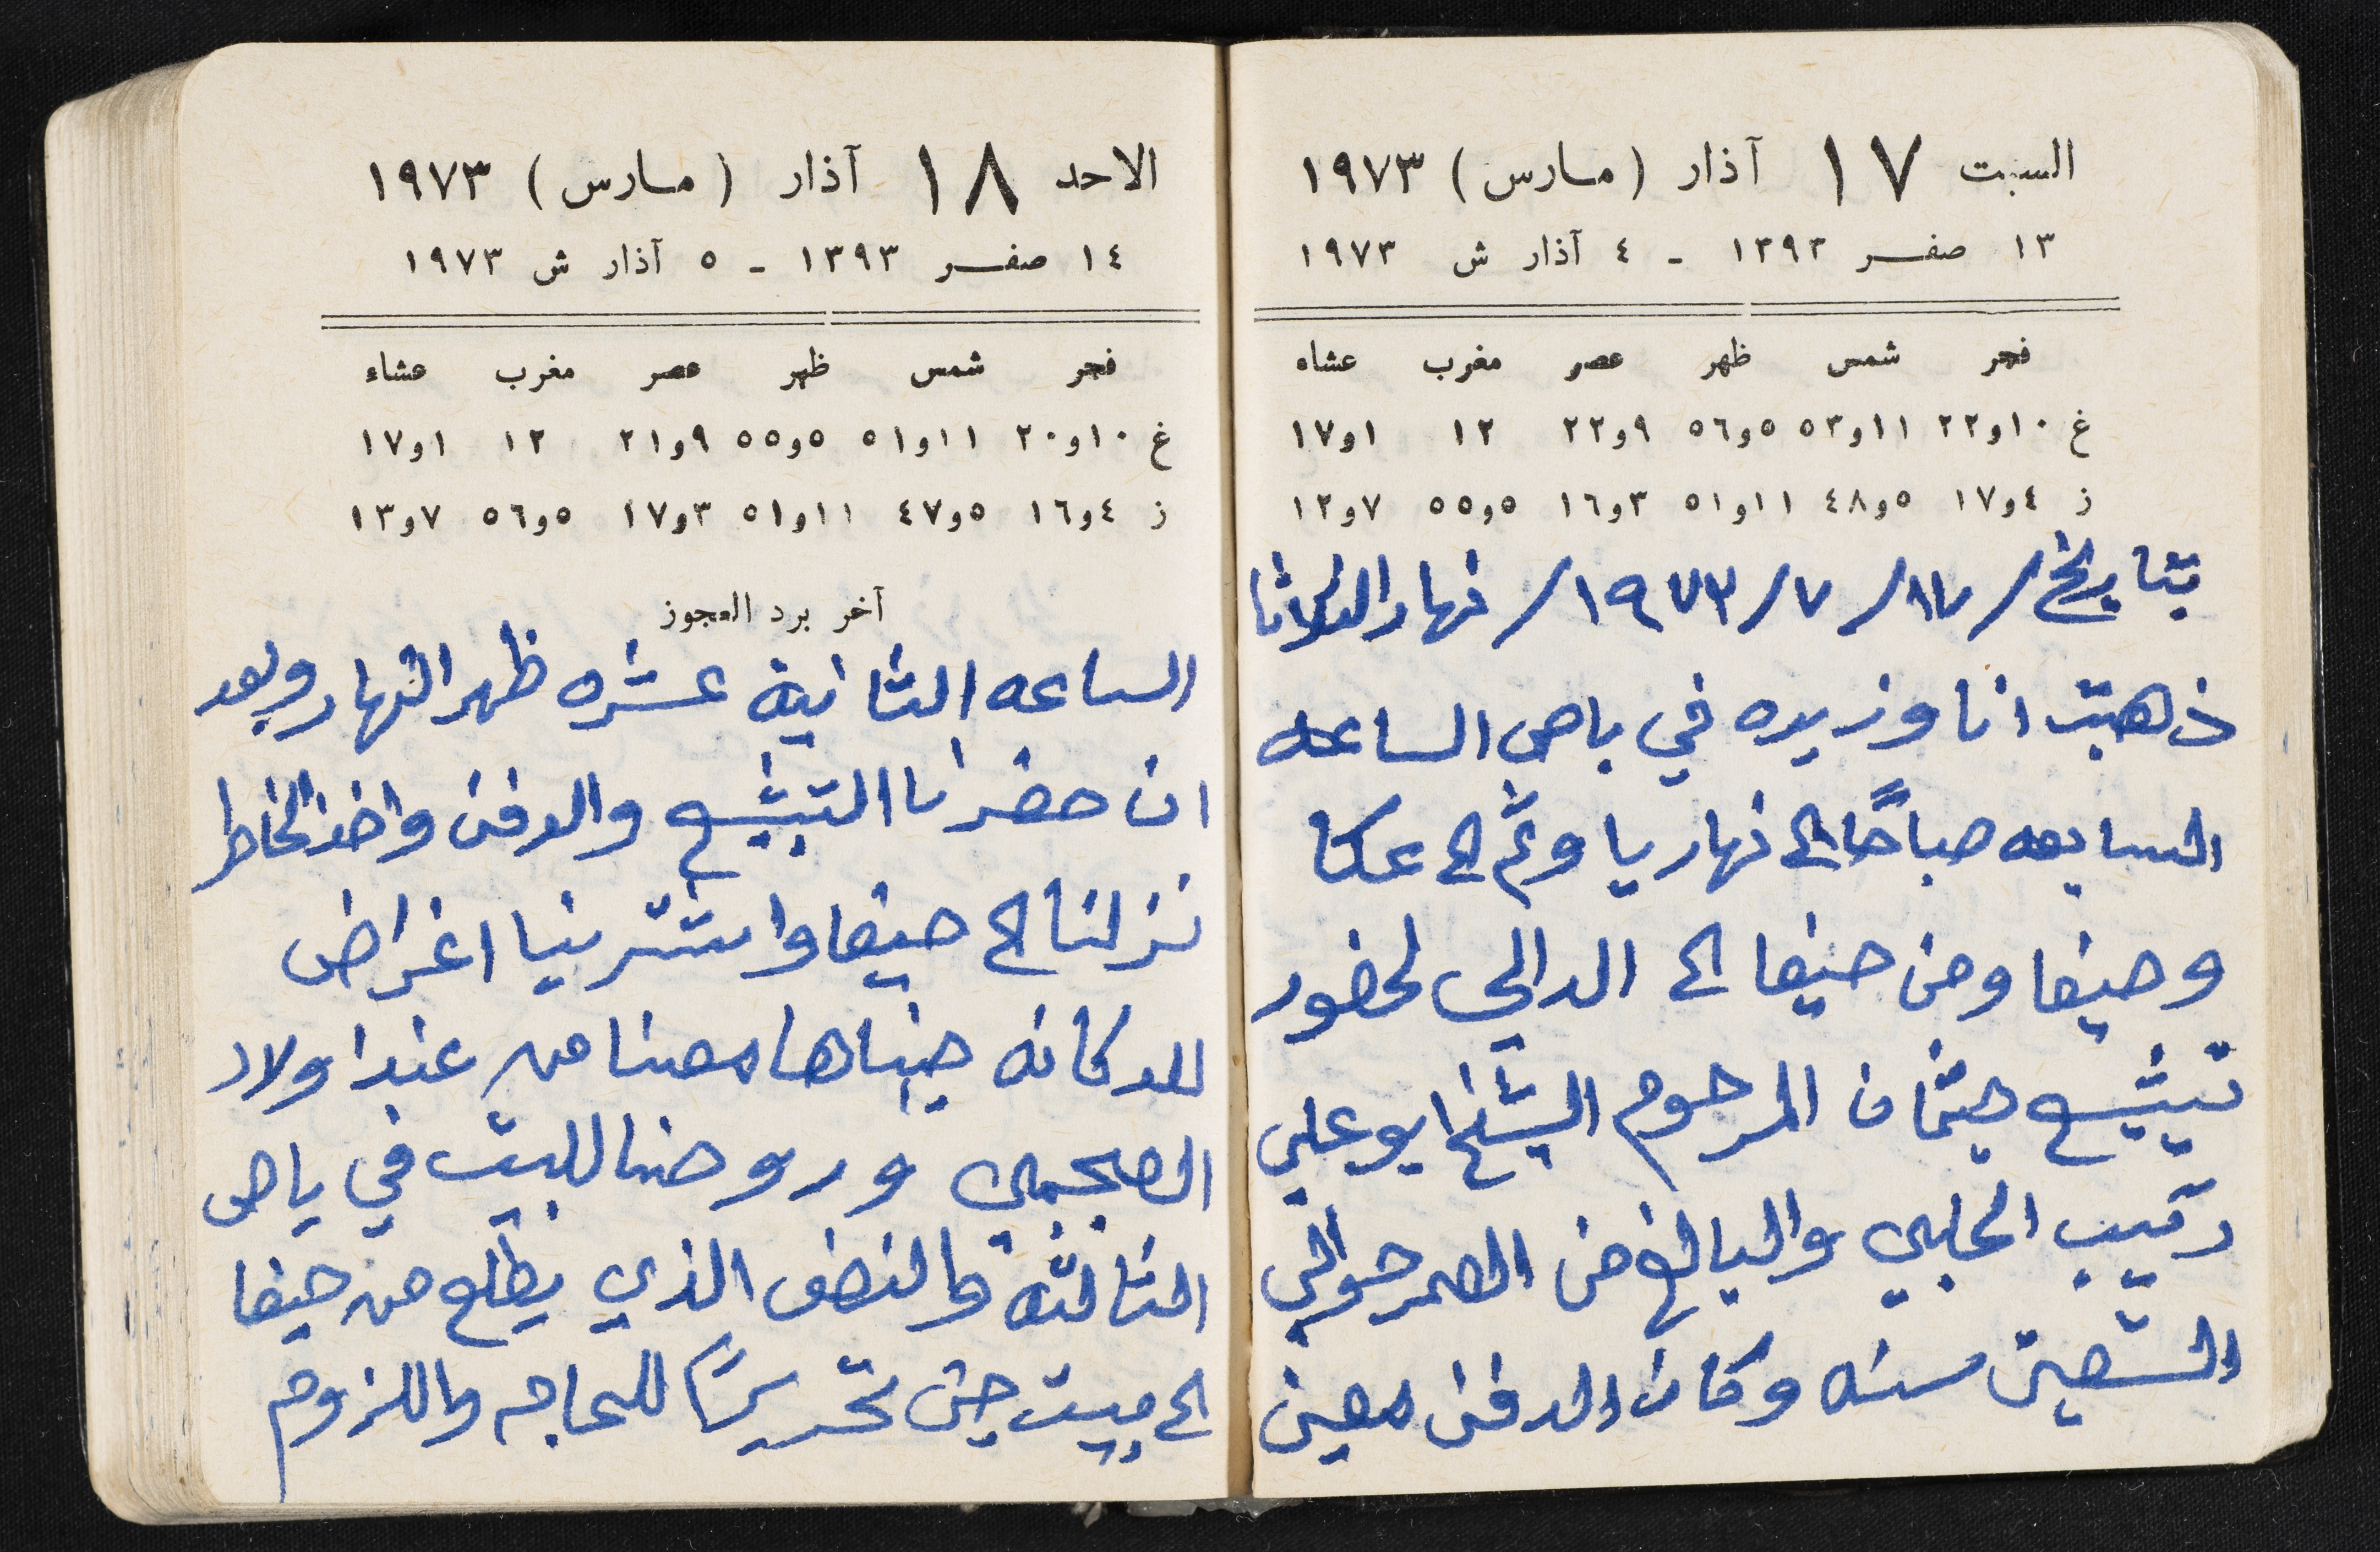 السبت ١٧ آذار (مارس) ١٩٧٣
١٣ صفر ١٣٩٣ - ٤ آذار ش ١٩٧٣
فجر شمس ظهر عصر مغرب عشاء
غ ١٠و٢٢ ١١و٥٣ ٥و٥٦ ٩و٢٢ ١٢ ١و١٧
ز ٤و١٧ ٥و٤٨ ١١و٥١ ٣و١٦ ٥و٥٥ ٧و١٢
بتاريخ /١٧/٧/١٩٧٣/ نهار الثلاثا
ذهبت انا وزيده في باص الساعه
السابعه صباحًا الى نهاريا وثم الى عكا
وحيفا ومن حيفا الى الدالي لحضور
تشيع جثمان المرحوم الشيخ ابو علي
ركيب الحلبي والبالغ من العمر حوالي
التسعين سنه وكان الدفن معين
الاحد ١٨ آذار (مارس) ١٩٧٣
١٤ صفر ١٣٩٣ - ٥ آذار ش ١٩٧٣
فجر شمس ظهر عصر مغرب عشاء
غ ١٠و٢٠ ١١و٥١ ٥و٥٥ ٩و٢١ ١٢ ١و١٧
ز ٤و١٦ ٥و٤٧ ١١و٥١ ٣و١٧ ٥و٥٦ ٧و١٣
آخر برد العجوز
الساعه الثانية عشره ظهر النهار وبعد
ان حضرنا التشيع والدفن واخذ الخاطر
نزلنا الى حيفا واشترينا اغراض
للدكانه جبناها معنا من عند اولاد
العجمي وروحنا للبيت في باص
الثالثه والنصف الذي يطلع من حيفا
الى بيت جن تحريرًا للحاجه واللزوم